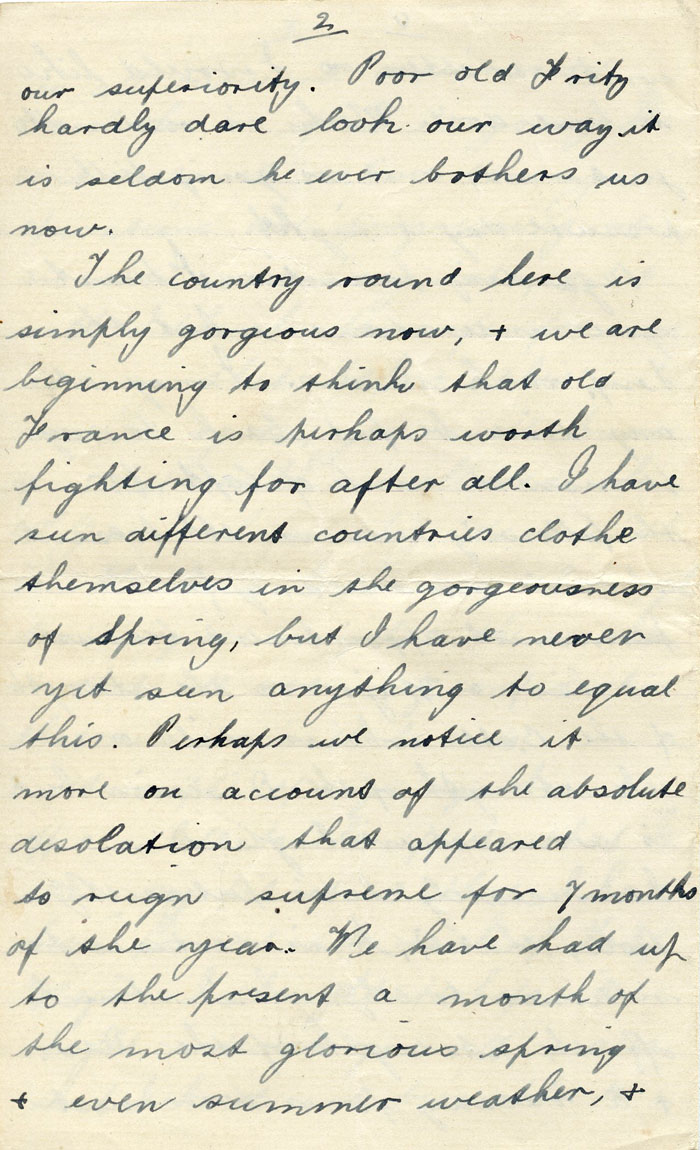 2
our superiority. Poor old Fritz
hardly dare look our way it
is seldom he ever bothers us
now.
The country round here is
simply gorgeous now, + we are
beginning to think that old
France is perhaps worth
fighting for after all. I have
seen different countries clothe
themselves in the gorgeousness
of Spring, but I have never
yet seen anything to equal
this. Perhaps we notice it
more on account of the absolute
desolation that appeared
to reign supreme for 7 months
of the year. We have had up
to the present a month of
the most glorious spring
+ even summer weather, +